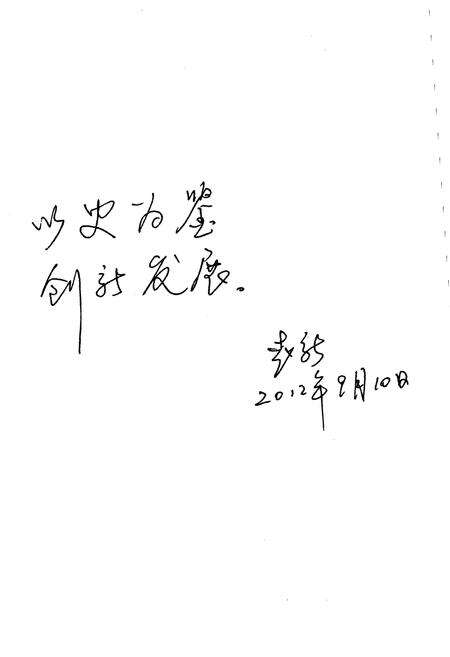 以史为鉴
创新发展。
赵新
2012年9月10日